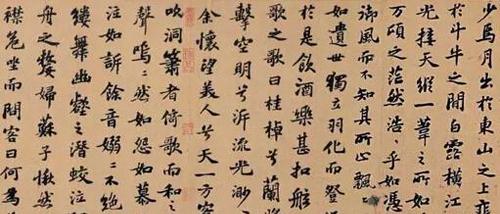 少焉月出於東山之上徘
於斗牛之間白露橫江
光接天縱一葦之所如
万頃之茫然浩〻乎如憑
御風而不知其所止飄〻
如遺世獨立羽化而登
於是飲酒樂甚扣舷
歌之歌曰桂棹兮蘭槳
擊空明兮泝流光渺〻
余懷望美人兮天一方客
吹洞簫者倚歌而和之
聲嗚〻然如怨如慕
泣如訴餘音嫋〻不絕
縷舞幽壑之潛蛟泣
舟之嫠婦蘇子愀然
襟危坐而問客曰何為